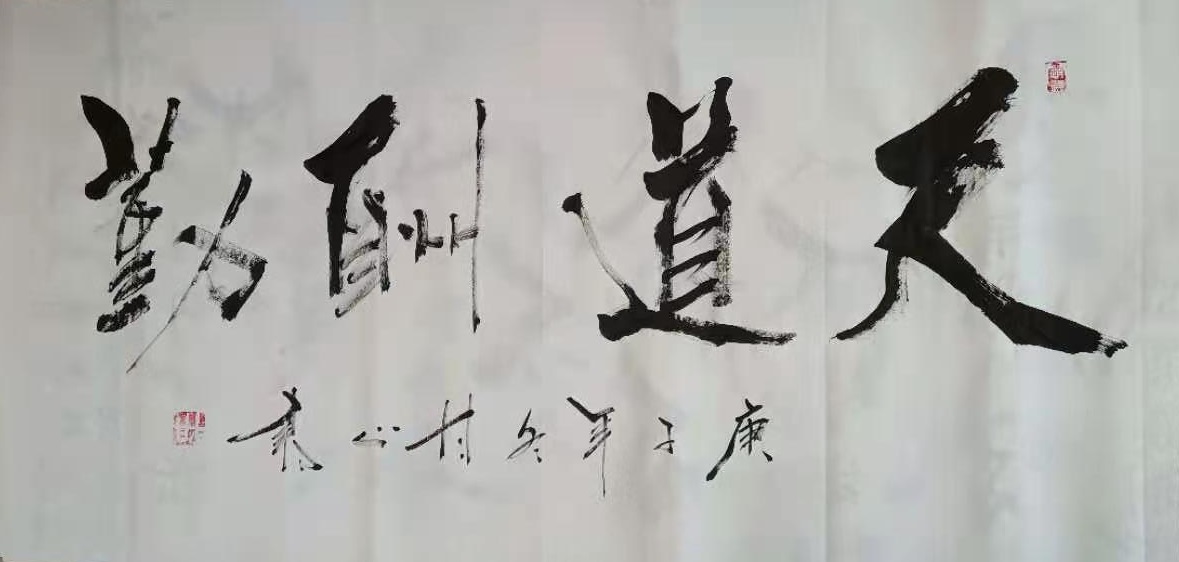 天道酬勤
庚子年冬村心袁